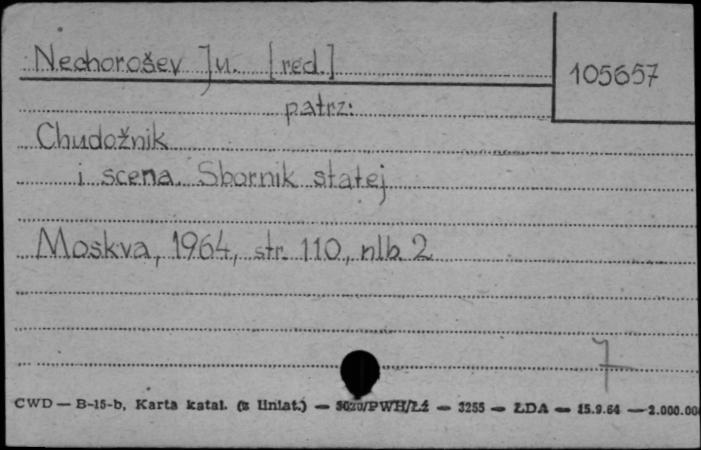 Nechorošev Ju. [red.]
105657
patrz:
Chudožnik
i scena. Sbornik statej
Moskva, 1964, str. 110, nlb. 2
7
CWD — B-15-b, Karta katal. (z liniat.) — 5020/PWH/Łż — 3255 — ŁDA — 15.9.64 — 2.000.00